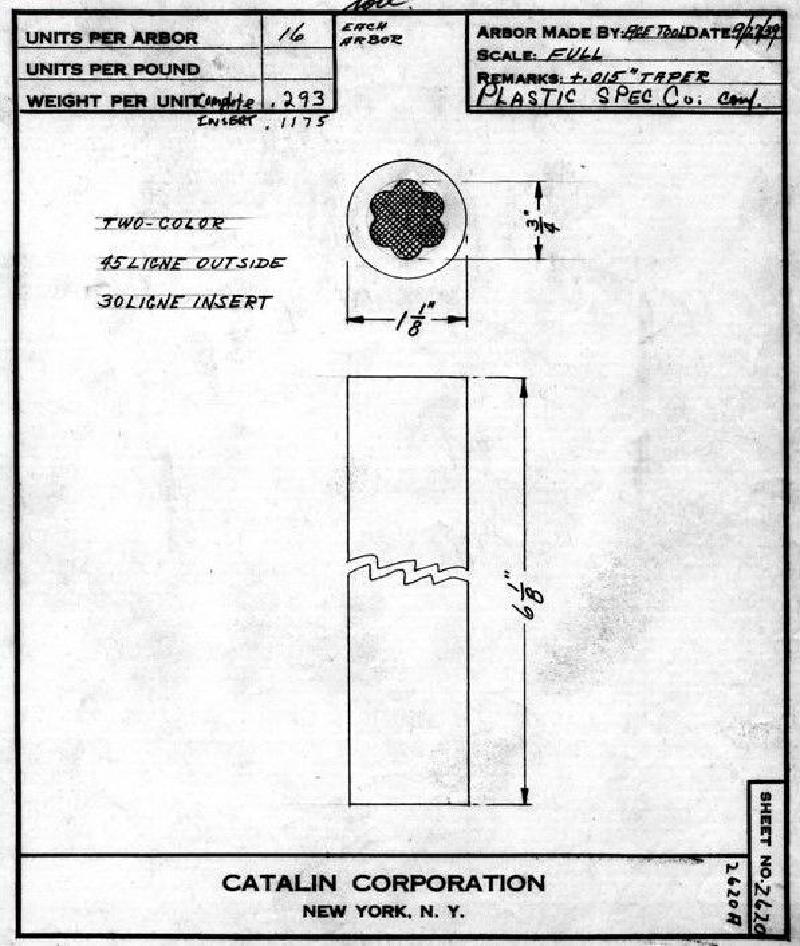 UNITS PER ARBOR 16
UNITS PER POUND
WEIGHT PER UNIT Complete .293
INSERT .1175
EACH
ARBOR
ARBOR MADE BY: ACE TOOL DATE 9/27/39
SCALE: FULL
REMARKS: +.015" TAPER
PLASTIC SPEC. Co.
TWO-COLOR
45 LIGNE OUTSIDE
30 LIGNE INSERT
3/4"
1 1/8"
6 1/8"
SHEET NO. 2620
2620A
CATALIN CORPORATION
NEW YORK, N. Y.